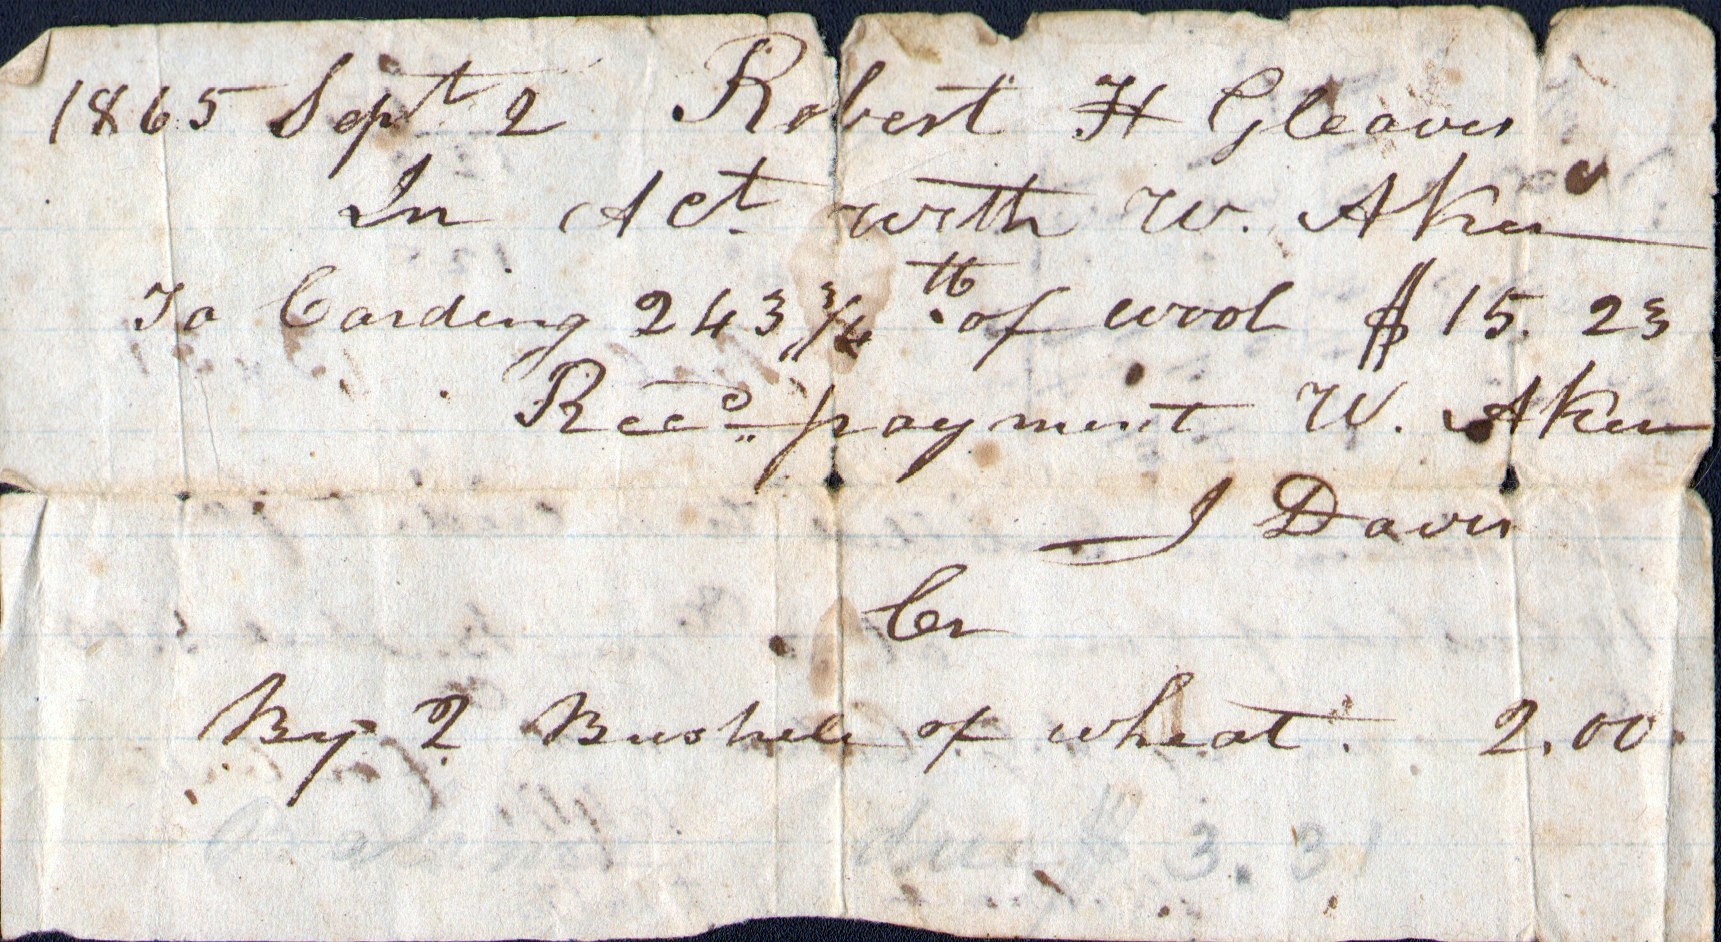 1865 Sept 2 Robert H Gleaves
In Act with W. Aker
To Carding 243 3/4 lb of wool $ 15. 23
Recd payment W. Aker
J Davis
Cr
By 2 Bushels of wheat. 2.00
due $ 3. 31